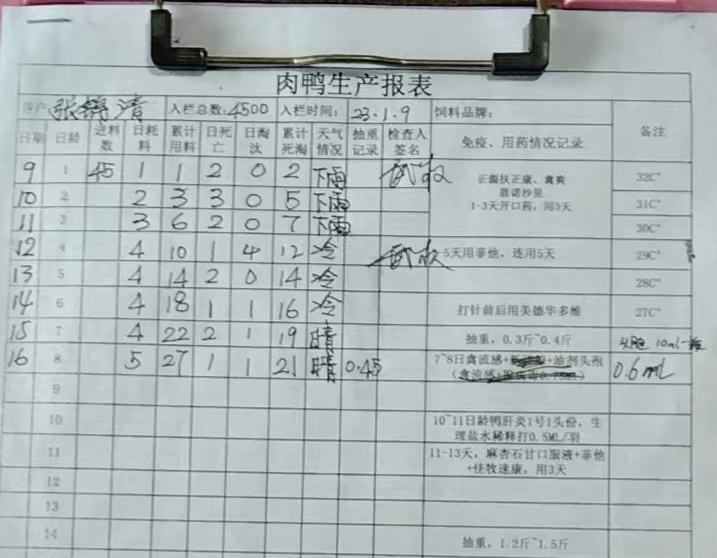 肉鸭生产报表
养户 张锦清 入栏总数:4500 入栏时间: 23.1.9 饲料品牌:
日期 日龄 进料数 日耗料 累计用料 日死亡 日淘汰 累计死淘 天气情况 抽重记录 检查人签名 免疫、用药情况记录 备注
9 1 45 1 1 2 0 2 下雨 正源扶正康、禽爽 恩诺沙星 1-3天开口药,用3天 32C°
10 2 2 3 3 0 5 下雨 31C°
11 3 3 6 2 0 7 下雨 30C°
12 4 4 10 1 4 12 冷 5天用菲他,连用5天 29C°
13 5 4 14 2 0 14 冷 28C°
14 6 4 18 1 1 16 冷 打针前后用美德华多维 27C°
15 7 4 22 2 1 19 晴 抽重,0.3斤~0.4斤 10ml一瓶
16 8 5 27 1 1 21 晴 0.45 7~8日禽流感+油剂头孢 0.6mL
9
10 10~11日龄鸭肝炎1号1头份,生理盐水稀释打0.5ML/羽
11 11-13天,麻杏石甘口服液+菲他+佳牧速康,用3天
12
13
14 抽重,1.2斤~1.5斤